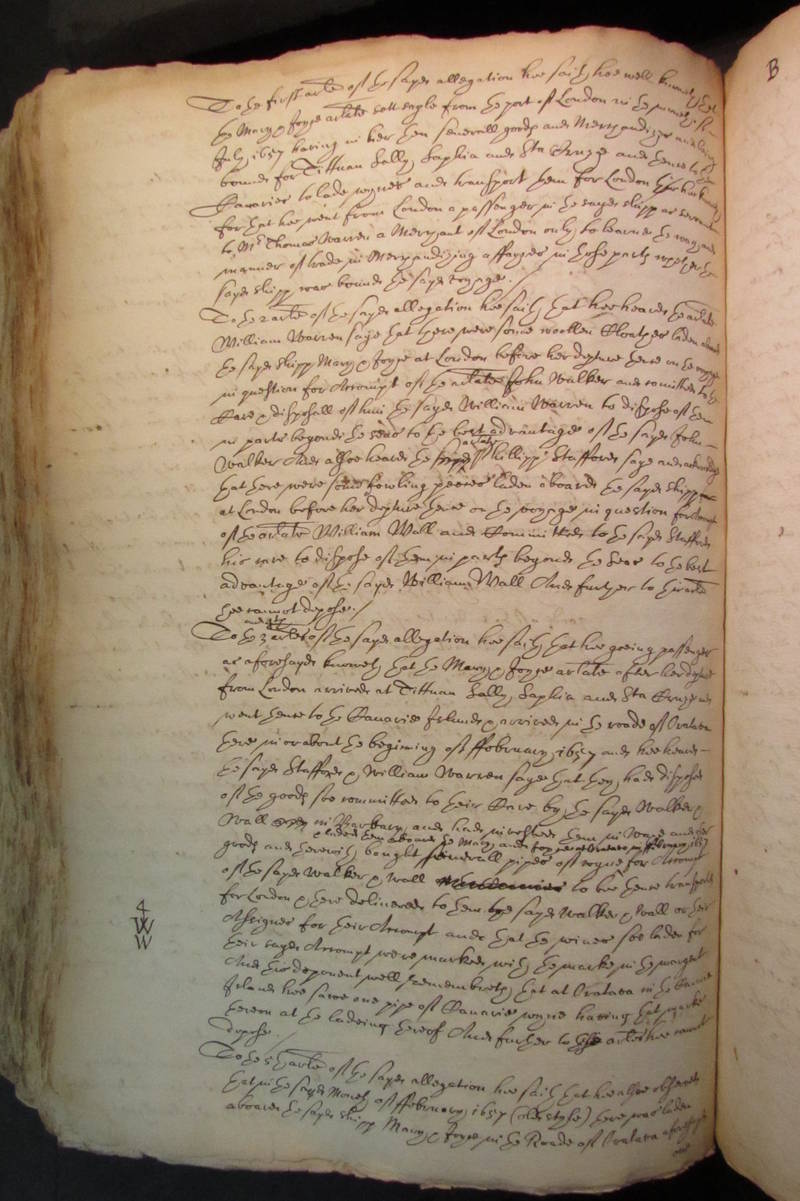 To the first arte of the sayd allegation hee saith hee well knoweth that
the Mary & Joyce arlate sett sayle from the port of London in the moneth of
July 1657 having in her then severall goods and Merchandizes and being
bounde for Tittuan Sally, Saphia and Sta Cruze and thence to the
Canaries to lade wynes and transport them for London
for that hee went from London a passenger in the sayd shipp as servant
to Mr Thomas Warren a Merchant of London only to learne the way and
manner of trade in Merchandizing affayres in those parts whether the
sayd shipp was bound the sayd voyage.
To the 2 arte of the sayd allegation hee saith that hee heard the arlate
William Warren saye that there were some woollen Cloathes laden aboard
the sayd shipp Mary & Joyce at London before her depture thence on the voyage
in question for Accompt of the arlate John Walker and comitted to the
Care & disposall of him the sayd William Warren to dispose of them
in parts beyond the seas to the best advantage of the sayd John
Walker And alsoe heard the arlate Phillipp Stafford saye and acknowledge
that there were some fowling peeces laden aboard the sayd shipp
at London before her depture thence on the voyage in question for Accompt
of the arlate William Wall and Committed to the sayd Stafford
his care to dispose of them in parts beyond the Seas to the best
advantage of the sayd William Wall And further to this arte
hee cannot depose./
To the 3 and 4th artes of the sayd allegation hee saith that hee goeing passenger
as aforesayd knoweth that the Mary & Joyce arlate after her depture
from London arrived at Tittuan Sally, Saphia and Sta Cruze and
went thence to the Canarie Islands & arrived in the roade of Oratava
there in or about the begining of ffebruary 1657 and hee heard
the sayd Stafford & William Warren saye that they had disposed
of the goods soe committed to their Care by the sayd Walker &
Wall in Barbary, and had invested them in Waxe and other
& laded them aboard the Mary and Joyce at Oratava in ffebruary 1657
goods and therewith bought severall pipes of wyne for Accompt
of the sayd Walker & Wall to bee thence transported
for London & there delivered to them the sayd Walker & Wall or their
Assignes for their Accompt and that the wines soe laden for
their sayd Accompt were marked with the marke in the margent
And this deponent well remembreth that at Oratava in the Canarie
Islands hee sawe one pipe of Canarie wyne having that marke
thereon at the ladeing thereof And further to these artes hee cannot
depose.
4
W
W
To the 5th arte of the sayd allegation hee saith that hee alsoe observed
that in the sayd Moneth of ffebruary 1657 (old style) there was laden
aboard the sayd shipp Mary & Joyce in the Roade of Oratava aforesayd
one
B